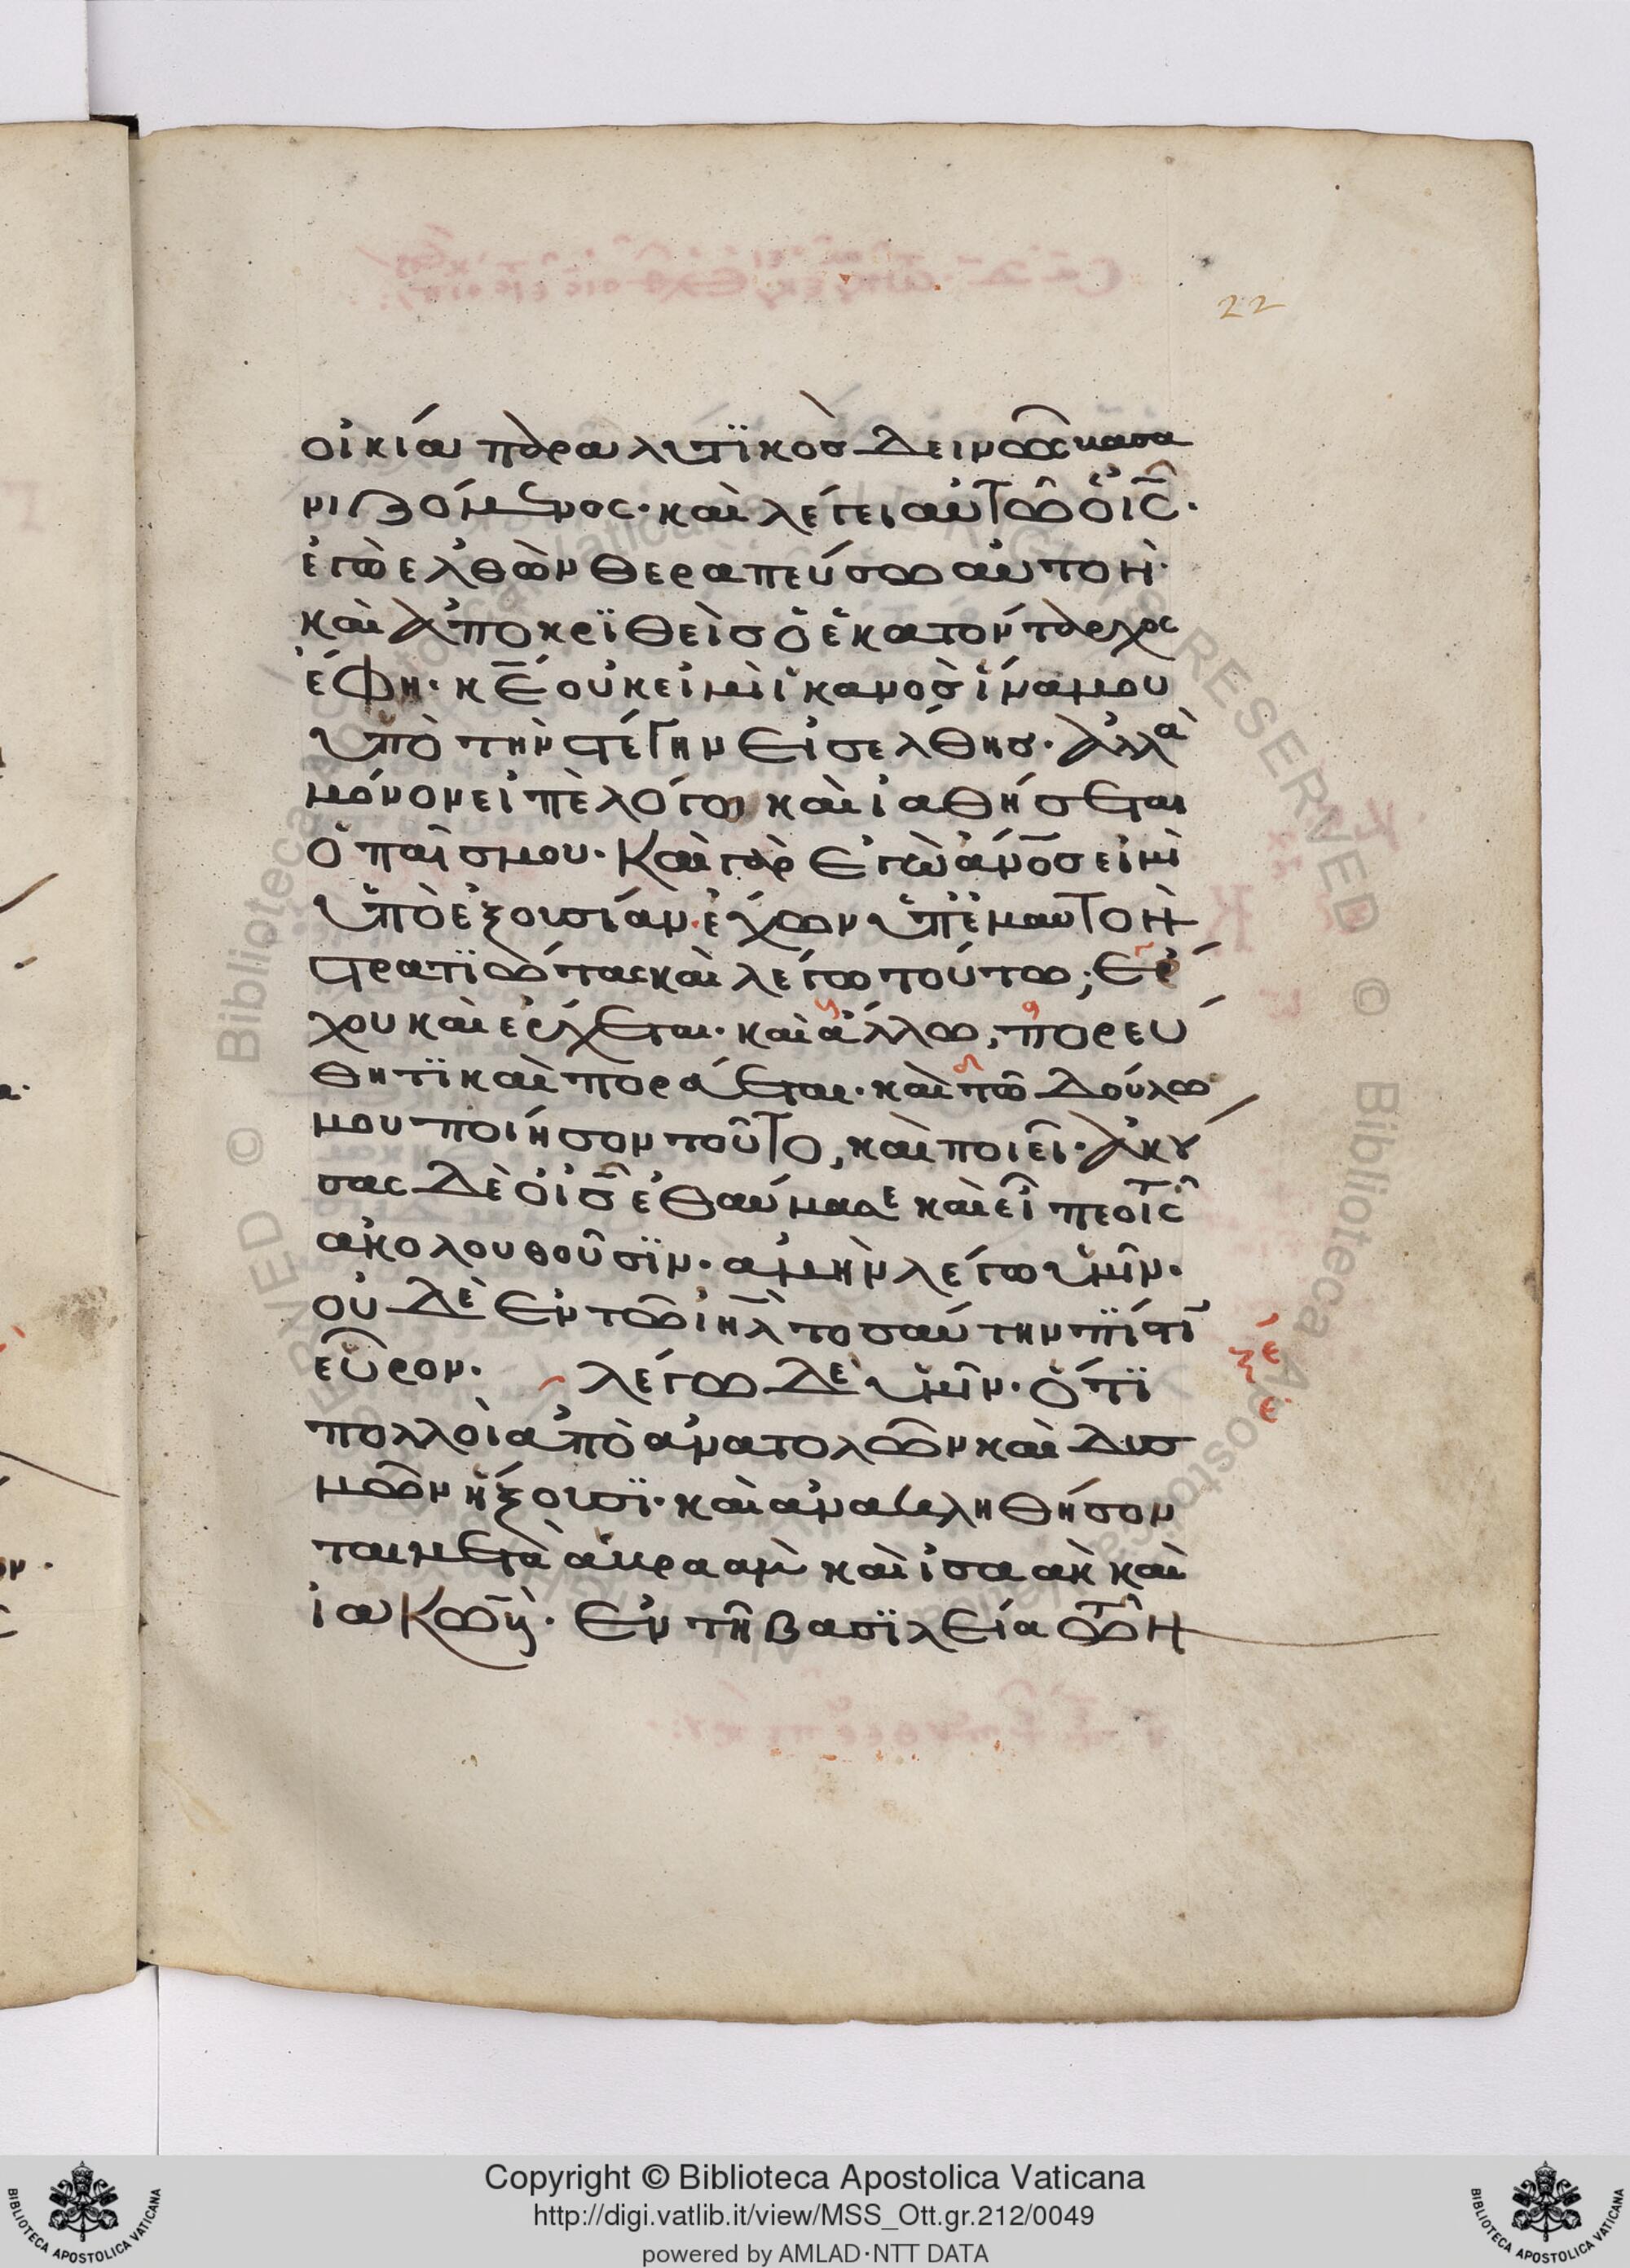 22
οἰκία παραλυτϊκὸσ δεινῶς βασα
νιζόμενος· καὶ λέγει αὐτῶ ὁ ις̅·
ἐγὼ ἐλθὼν θεραπεύσω αὐτον·
καὶ ἀποκρϊθεὶσ ὁ ἑκατόνταρχος
ἔφη· κε̅ οὐκ εἰμὶ ἱκανοσ ἵνα μου
ὑπὸ τὴν στέγην εἰσέλθησ· ἀλλὰ
μόνον εἰπὲ λόγω καὶ ἰαθήσεται
ὁ παῖσ μου· Καὶ γὰρ ἐγὼ ἄνο̅σ εἰμὶ
ὑπὸ ἐξουσίαν ἔχων ὑπ' ἐμαυτὸν
στρατϊώτας καὶ λέγω τούτω, ἔρ
χου καὶ ἔρχεται· καὶ ἄλλω, πορεύ
θητϊ καὶ πορεύεται· καὶ τῶ δούλω
μου ποίησον τοῦτο, καὶ ποιεῖ· ἀκού
σας δὲ ὁ ισ̅ ἐθαύμασε καὶ εἶπε τοῖς
ἀκολουθοῦσϊν· ἀμὴν λέγω ὑμῖν·
οὐδὲ ἐν τῶ ιηλ̅ τοσαύτην πίστϊ
εὗρον· λέγω δὲ ὑμῖν· ὅτϊ
πολλοὶ ἀπὸ ἀνατολῶν καὶ δυσ
μῶν ἥξουσϊ· καὶ ἀνακληθήσον
ται μετὰ ἀβραὰμ καὶ ἰσαὰκ καὶ
ἰακὼβ· ἐν τῆ βασϊλεία τῶν
ξε
ε
Copyright © Biblioteca Apostolica Vaticana
http://digi.vatlib.it/view/MSS_Ott.gr.212/0049
powered by AMLAD·NTT DATA
BIBLIOTECA APOSTOLICA VATICANA
BIBLIOTECA APOSTOLICA VATICANA